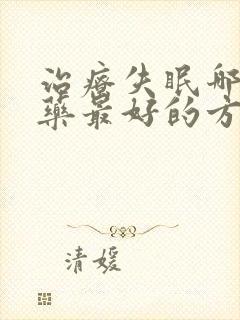 治療失眠哪
藥最好的方
清媛